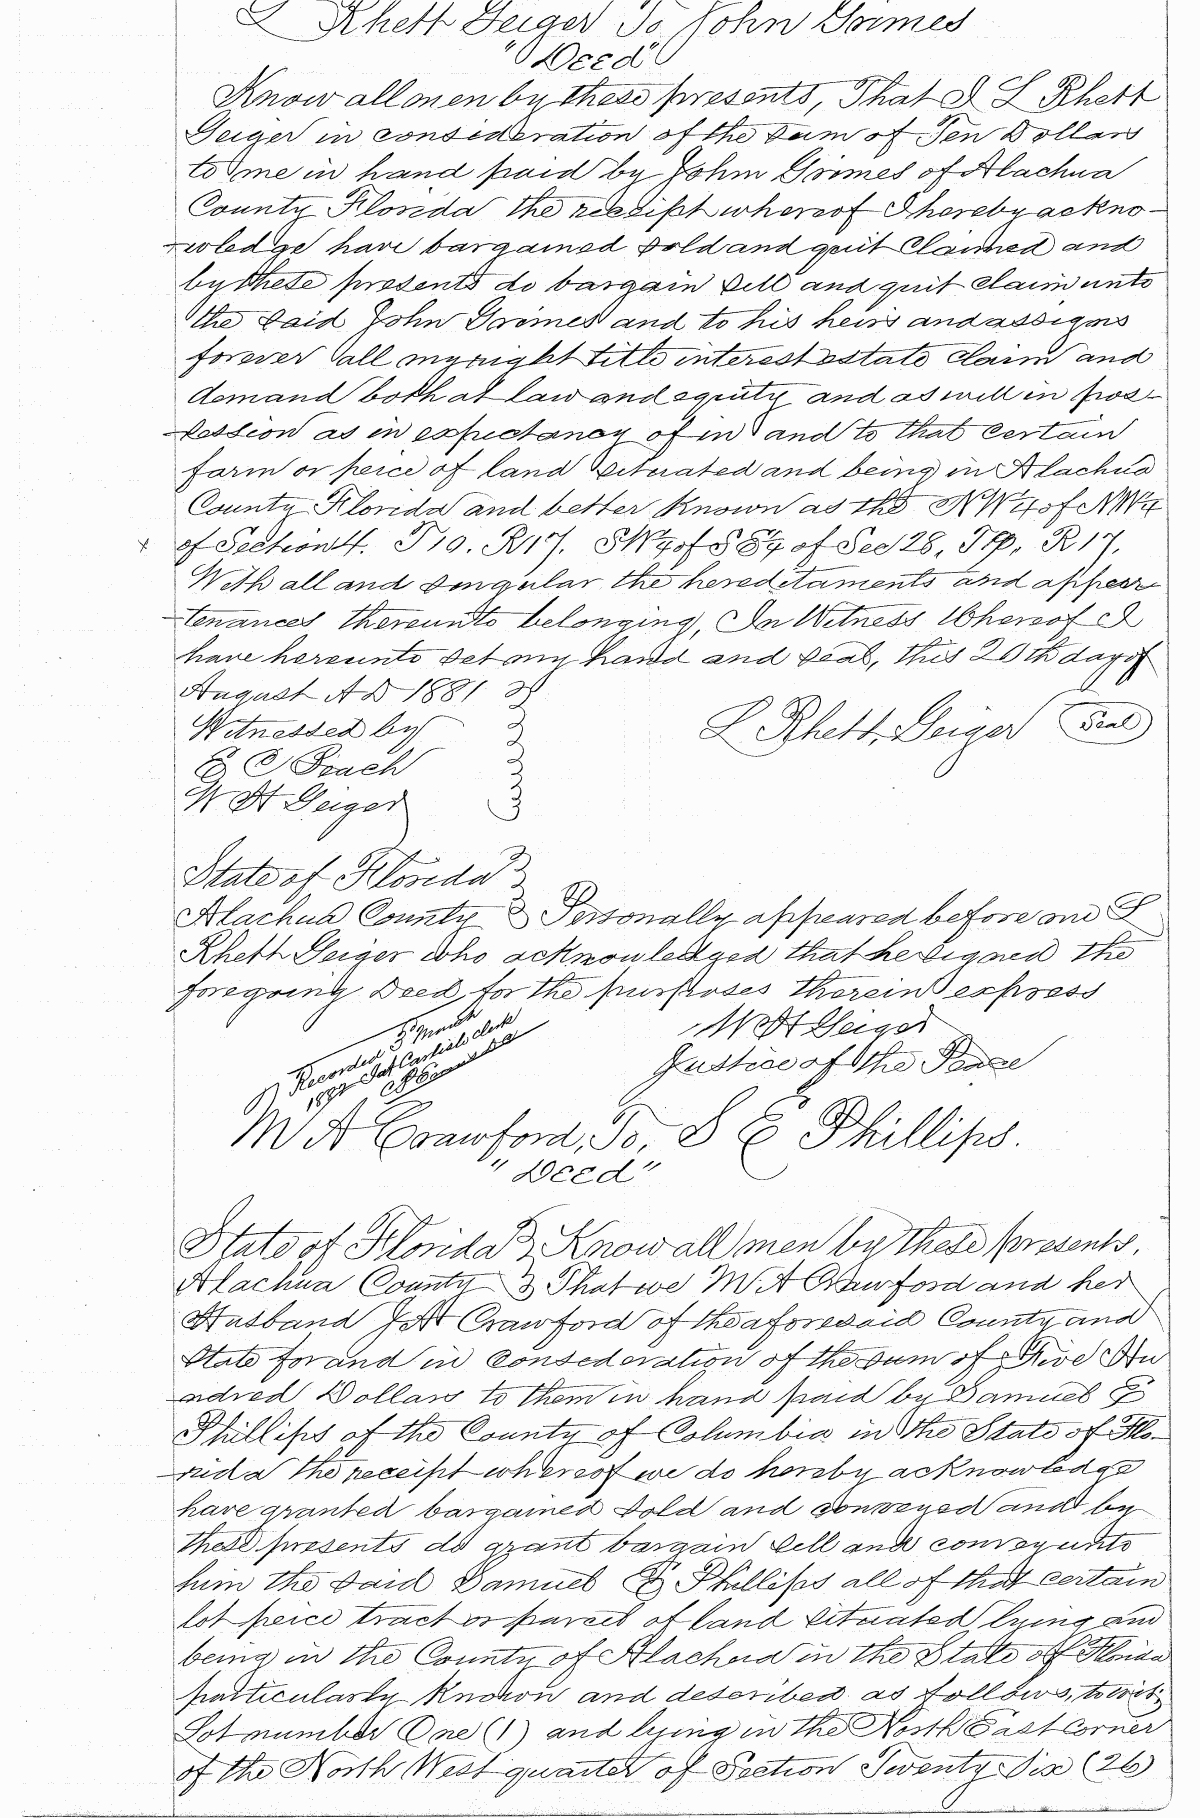 L Rhett Geiger To John Grimes
"Deed"
Know all men by these presents, That I L Rhett
Geiger in consideration of the sum of Ten Dollars
to me in hand paid by John Grimes of Alachua
County Florida the receipt whereof I hereby ackno-
-wledge have bargained sold and quit claimed and
by these presents do bargain sell and quit claim unto
the said John Grimes and to his heirs and assigns
forever all my right title interest estate claim and
demand both at law and equity and as well in pos-
-session as in expectancy of in and to that certain
farm or peice of land situated and being in Alachua
County Florida and better known as the NW¼ of NW¼
x of Section 4. T10. R17. SW¼ of SE¼ of Sec 28, T R17.
With all and singular the hereditaments and appur-
-tenances thereunto belonging, In Witness Whereof I
have hereunto set my hand and seal, this 20th day of
August AD 1881
Witnessed by L Rhett Geiger Seal
E C Peach
W H Geiger
State of Florida
Alachua County Personally appeared before me L
Rhett Geiger who acknowledged that he signed the
foregoing Deed for the purposes therein express
W H Geiger
Justice of the Peace
Recorded 3 March
1882 Jas Carlisle clerk
M A Crawford, To, S E Phillips.
"Deed"
State of Florida Know all men by these presents,
Alachua County That we M. A Crawford and her
Husband J A Crawford of the aforesaid County and
State for and in consederation of the sum of Five Hu
-ndred Dollars to them in hand paid by Samuel E
Phillips of the County of Columbia in the State of Flo-
-rida the receipt whereof we do hereby acknowledge
have granted bargained sold and conveyed and by
these presents do grant bargain sell and convey unto
him the said Samuel E Phillips all of that certain
lot peice tract or parcel of land situated lying and
being in the County of Alachua in the State of Florida
particularly known and described as follows, to wit;
Lot number One (1) and lying in the North East corner
of the North West quarter of Section Twenty Six (26)